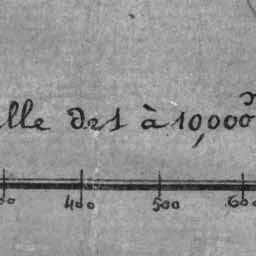 lle de 1 à 10,000
00 400 500 600